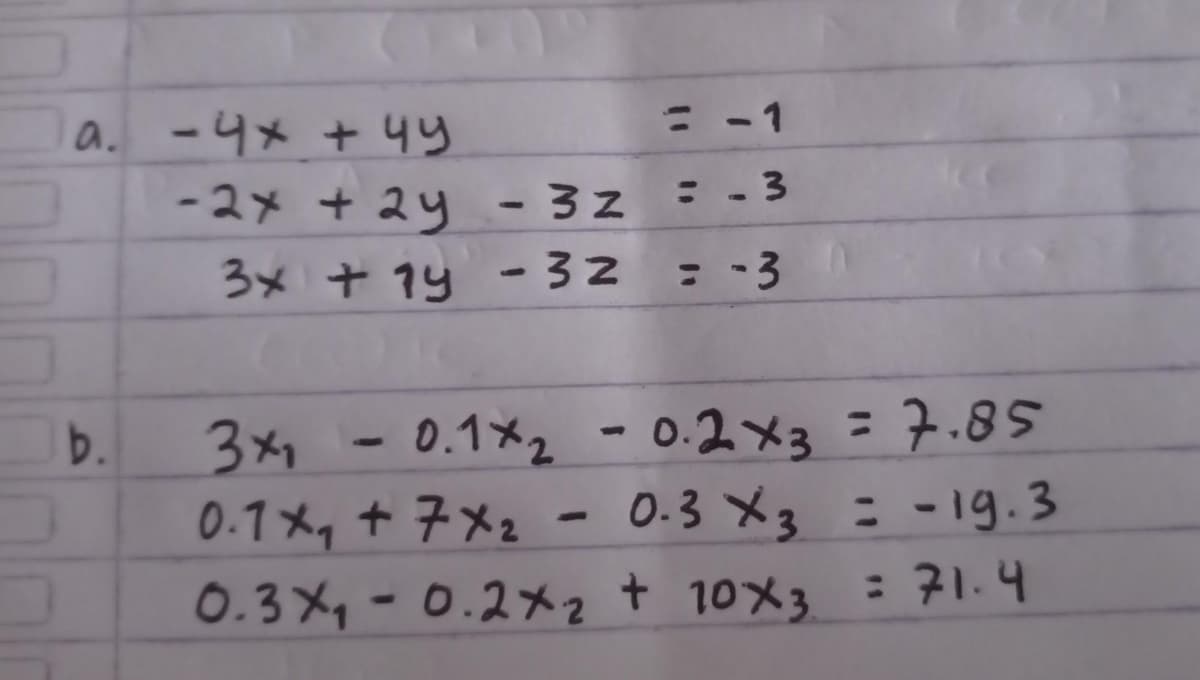 a. -4x + 4y = -1
-2x + 2y - 3z = -3
3x + 1y - 3z = -3
b. 3x₁ - 0.1x₂ - 0.2x₃ = 7.85
0.1x₁ + 7x₂ - 0.3x₃ = -19.3
0.3x₁ - 0.2x₂ + 10x₃ = 71.4